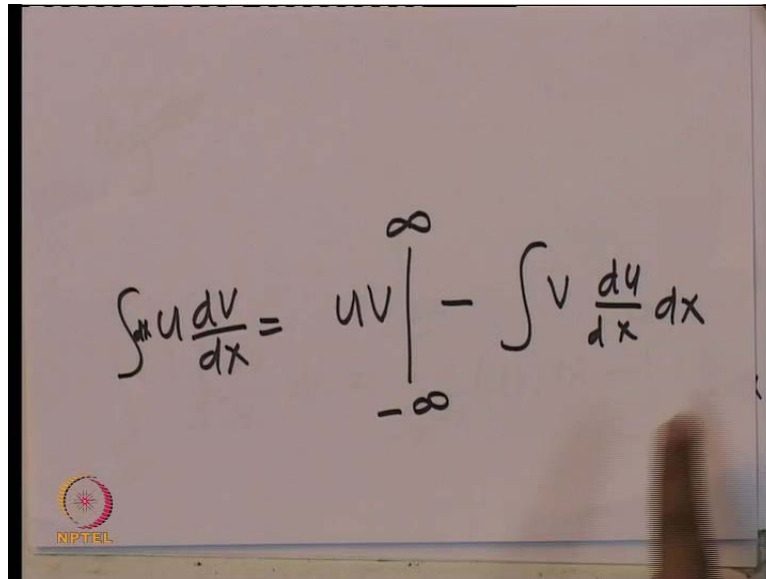 ∫dx u dv/dx = uv |_{-∞}^{∞} - ∫ v du/dx dx
NPTEL